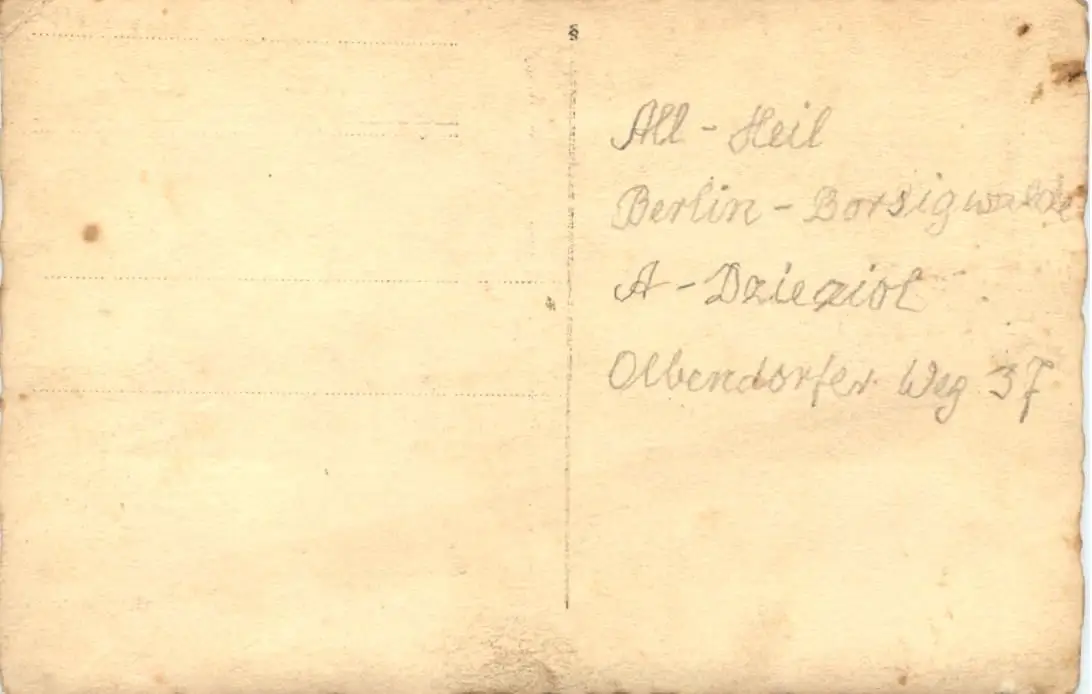 All - Heil
Berlin - Borsigwalde
A - Dzieziol
Olbendorfer Weg 37